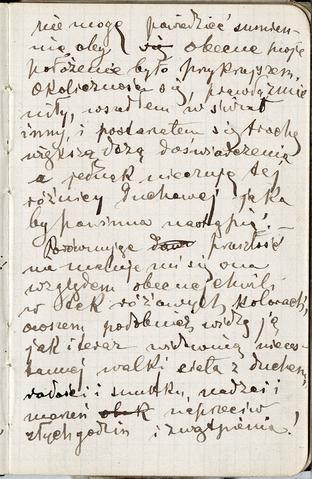 nie mogę powiedzieć sumien-
nie aby się obecne moje
położenie było przykrzejszem.
Okoliczności się, prawda, zmie
niły, wszedłem w świat
inny, i postarałem się trochę
większą dozą doświadczenia
a jednak nie czuję tej
różnicy duchowej jaka
by powinna nastąpić. —
Porównując przeszłość
na maluje mi się ona
względem obecnej chwili
w tak różowych kolorach,
owszem podobnież widzę ją
jak i teraz widownią nieus-
tannej walki ciała z duchem,
radości i smutku, nadziei i
marzeń naprzeciw
złych godzin i zwątpienia!